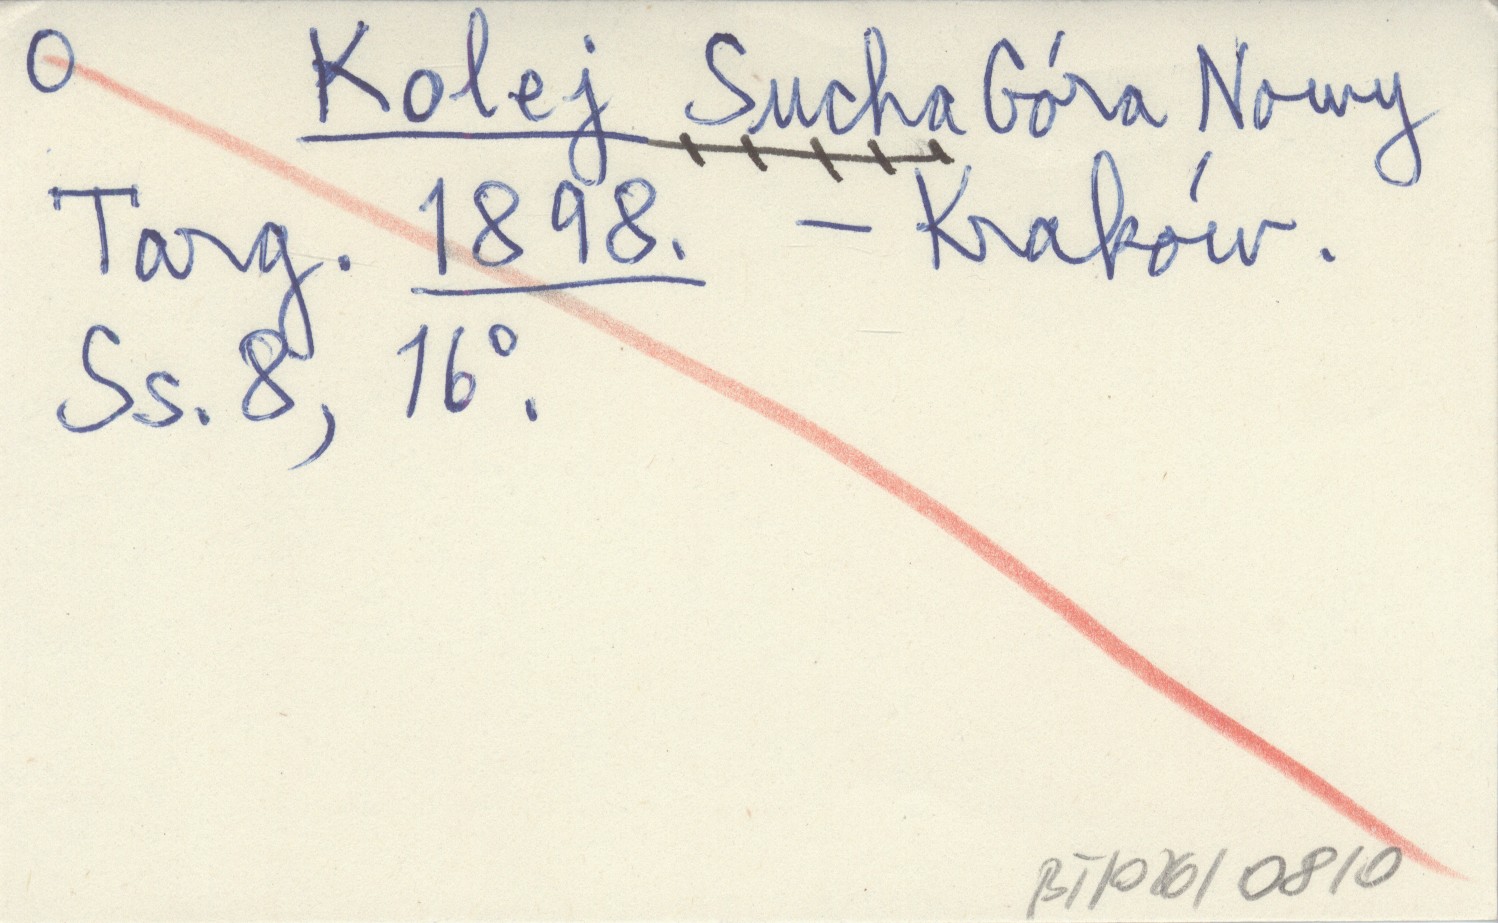 O Kolej Sucha Góra Nowy
Targ. 1898. – Kraków.
Ss. 8, 16°.
0810